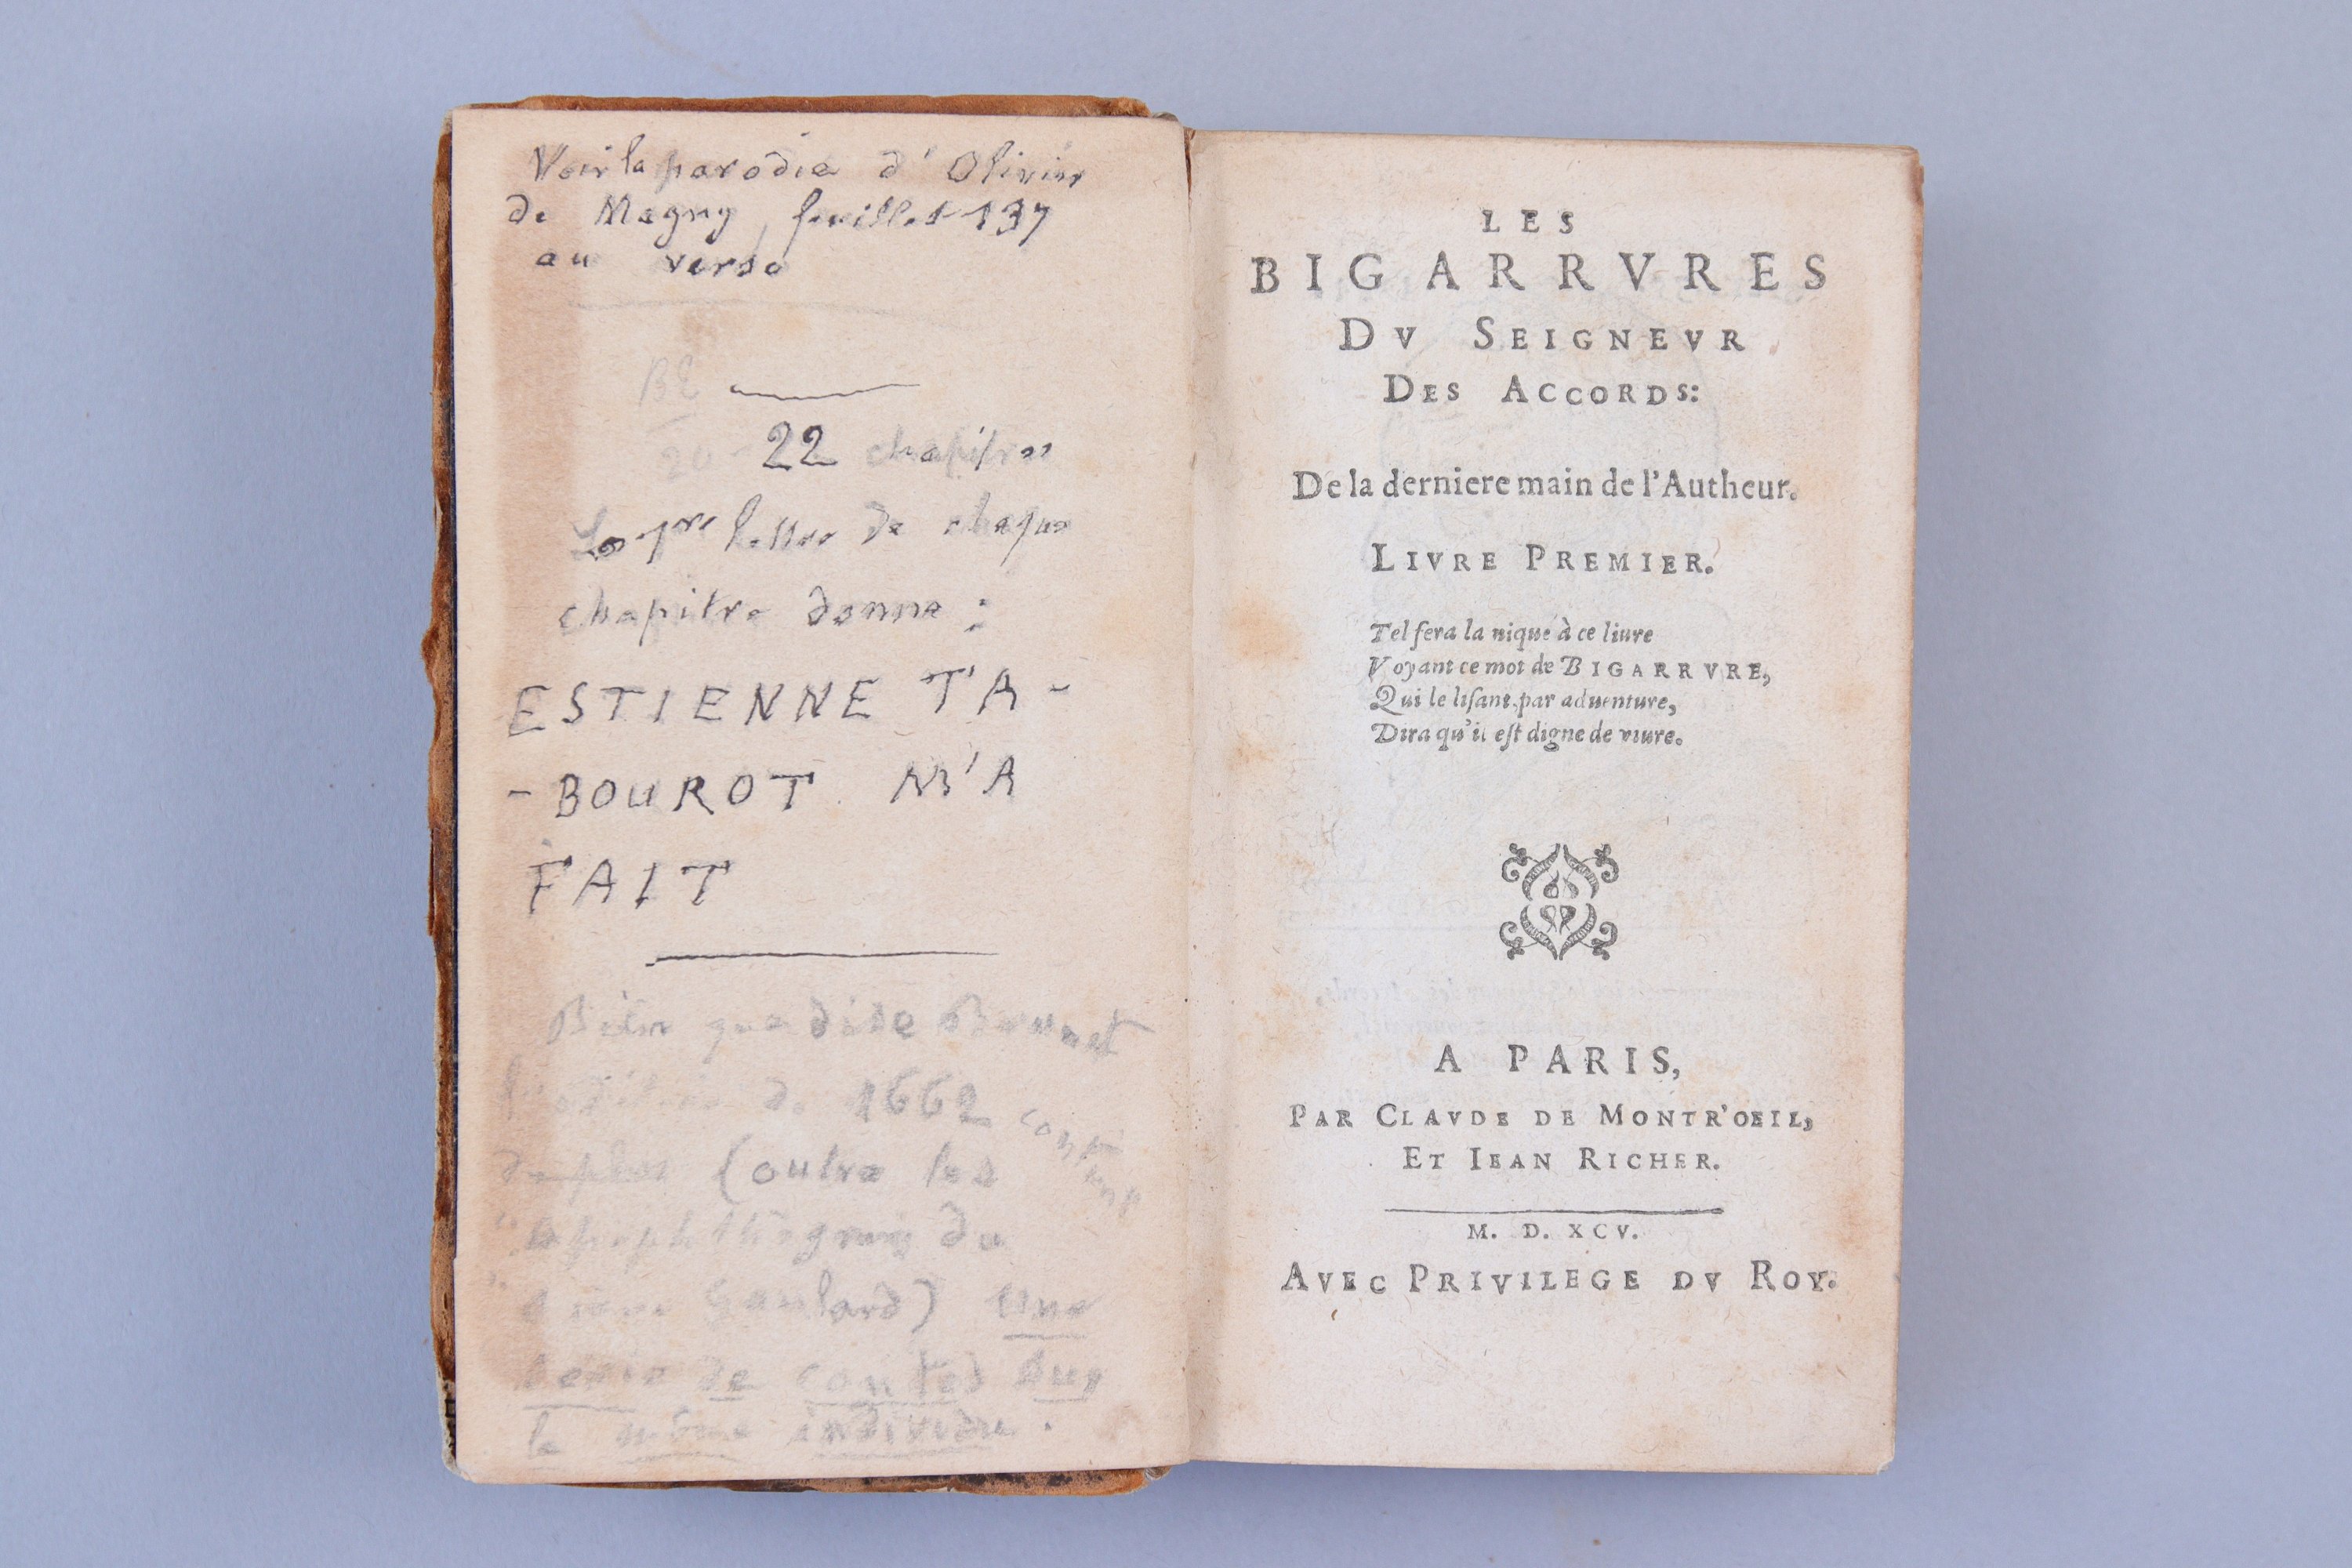 Voir la parodie d'Olivier
de Magny, feuillet 137
au verso
BE
20
22 chapitres
La 1re lettre de chaque
chapitre donne :
ESTIENNE TA-
-BOUROT M'A
FAIT
Bien que dise Brunet
l'édition de 1662 contient
de plus (outre les
apophthegmes du
Gaulard) une
série de contes sur
le même individu.
LES
BIGARRVRES
DV SEIGNEVR
DES ACCORDS:
De la derniere main de l'Autheur.
LIVRE PREMIER.
Tel fera la nique à ce liure
Voyant ce mot de BIGARRVRE,
Qui le lisant par aduenture,
Dira qu'il est digne de viure.
A PARIS,
PAR CLAVDE DE MONTR'OEIL,
ET IEAN RICHER.
M. D. XCV.
AVEC PRIVILEGE DV ROY.